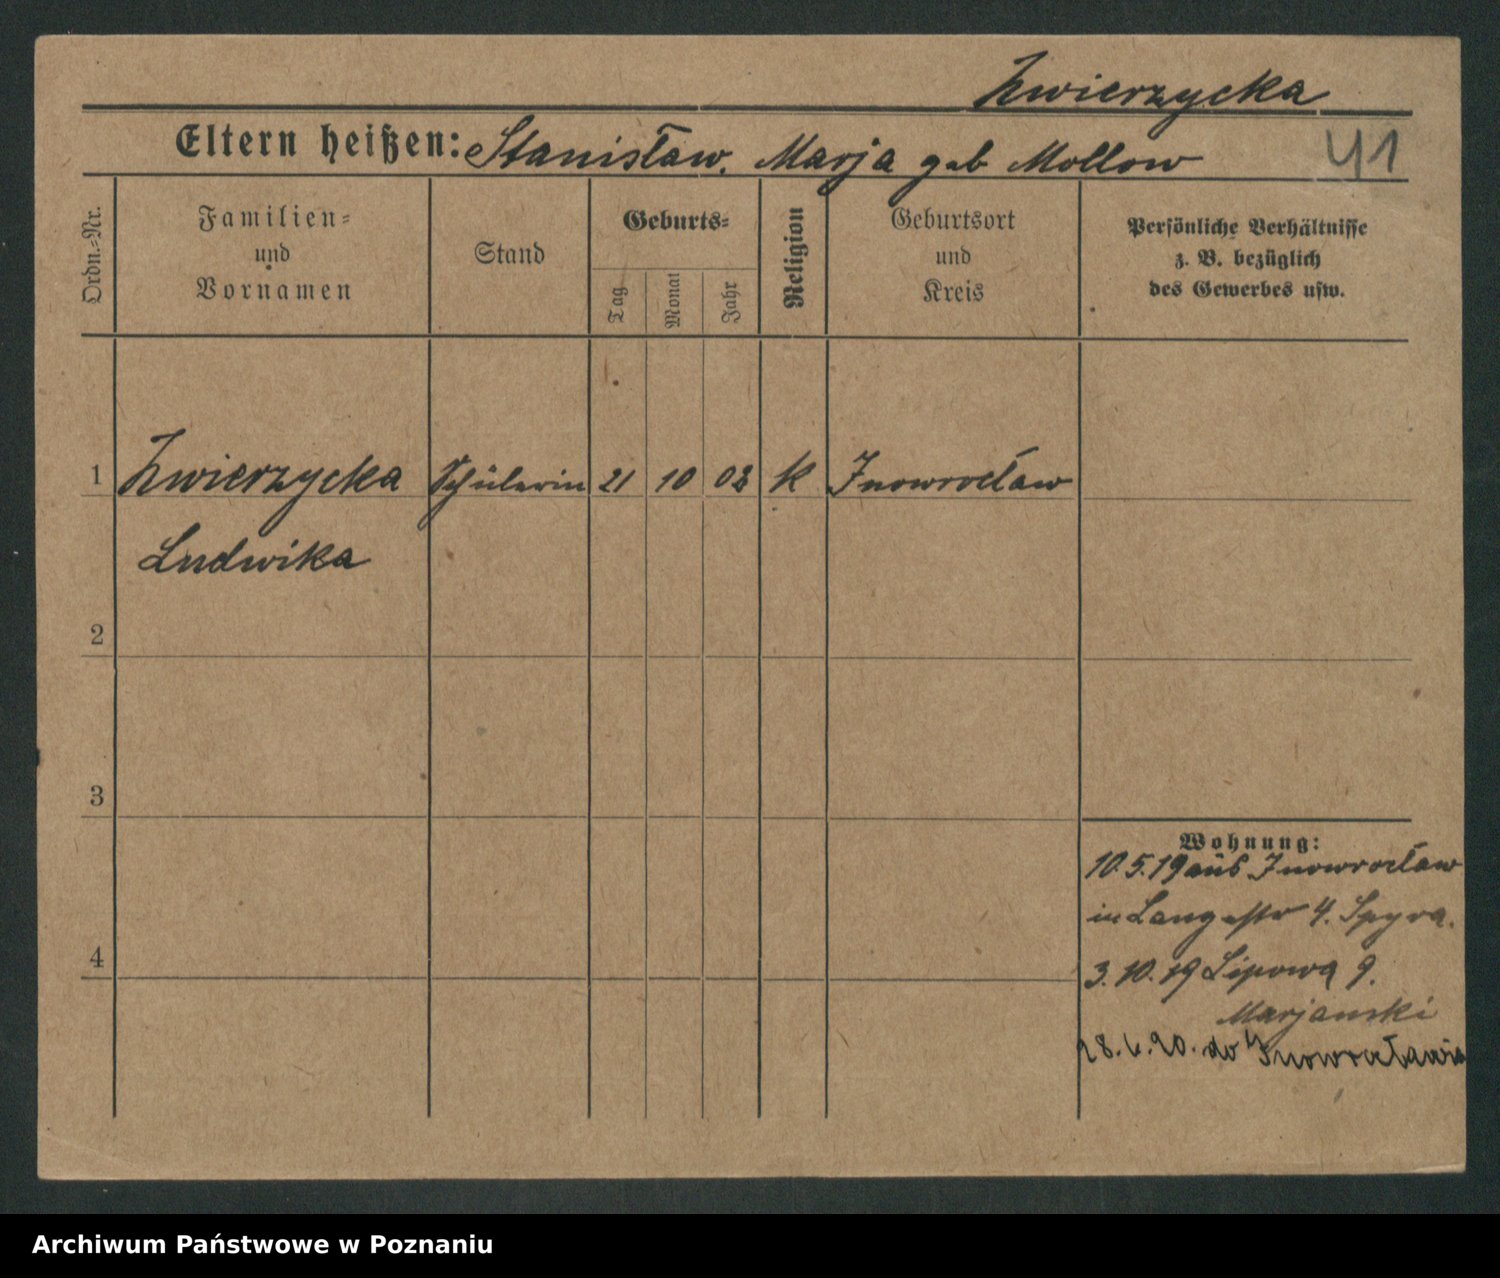 Zwierzycka
Eltern heißen: Stanisław, Marja geb Mollow
41
Ordn.-Nr.
Familien-
und
Vornamen
Stand
Geburts-
Tag
Monat
Jahr
Religion
Geburtsort
und
Kreis
Persönliche Verhältnisse
z. B. bezüglich
des Gewerbes usw.
1 Zwierzycka Schülerin 21 10 02 K Inowrocław
Ludwika
2
3
4
Wohnung:
10.5.19 aus Inowrocław
in Langestr 4. Spyra.
3.10.19 Lipowa 9.
Marjanski
28.6.20. do Inowrocławia
Archiwum Państwowe w Poznaniu